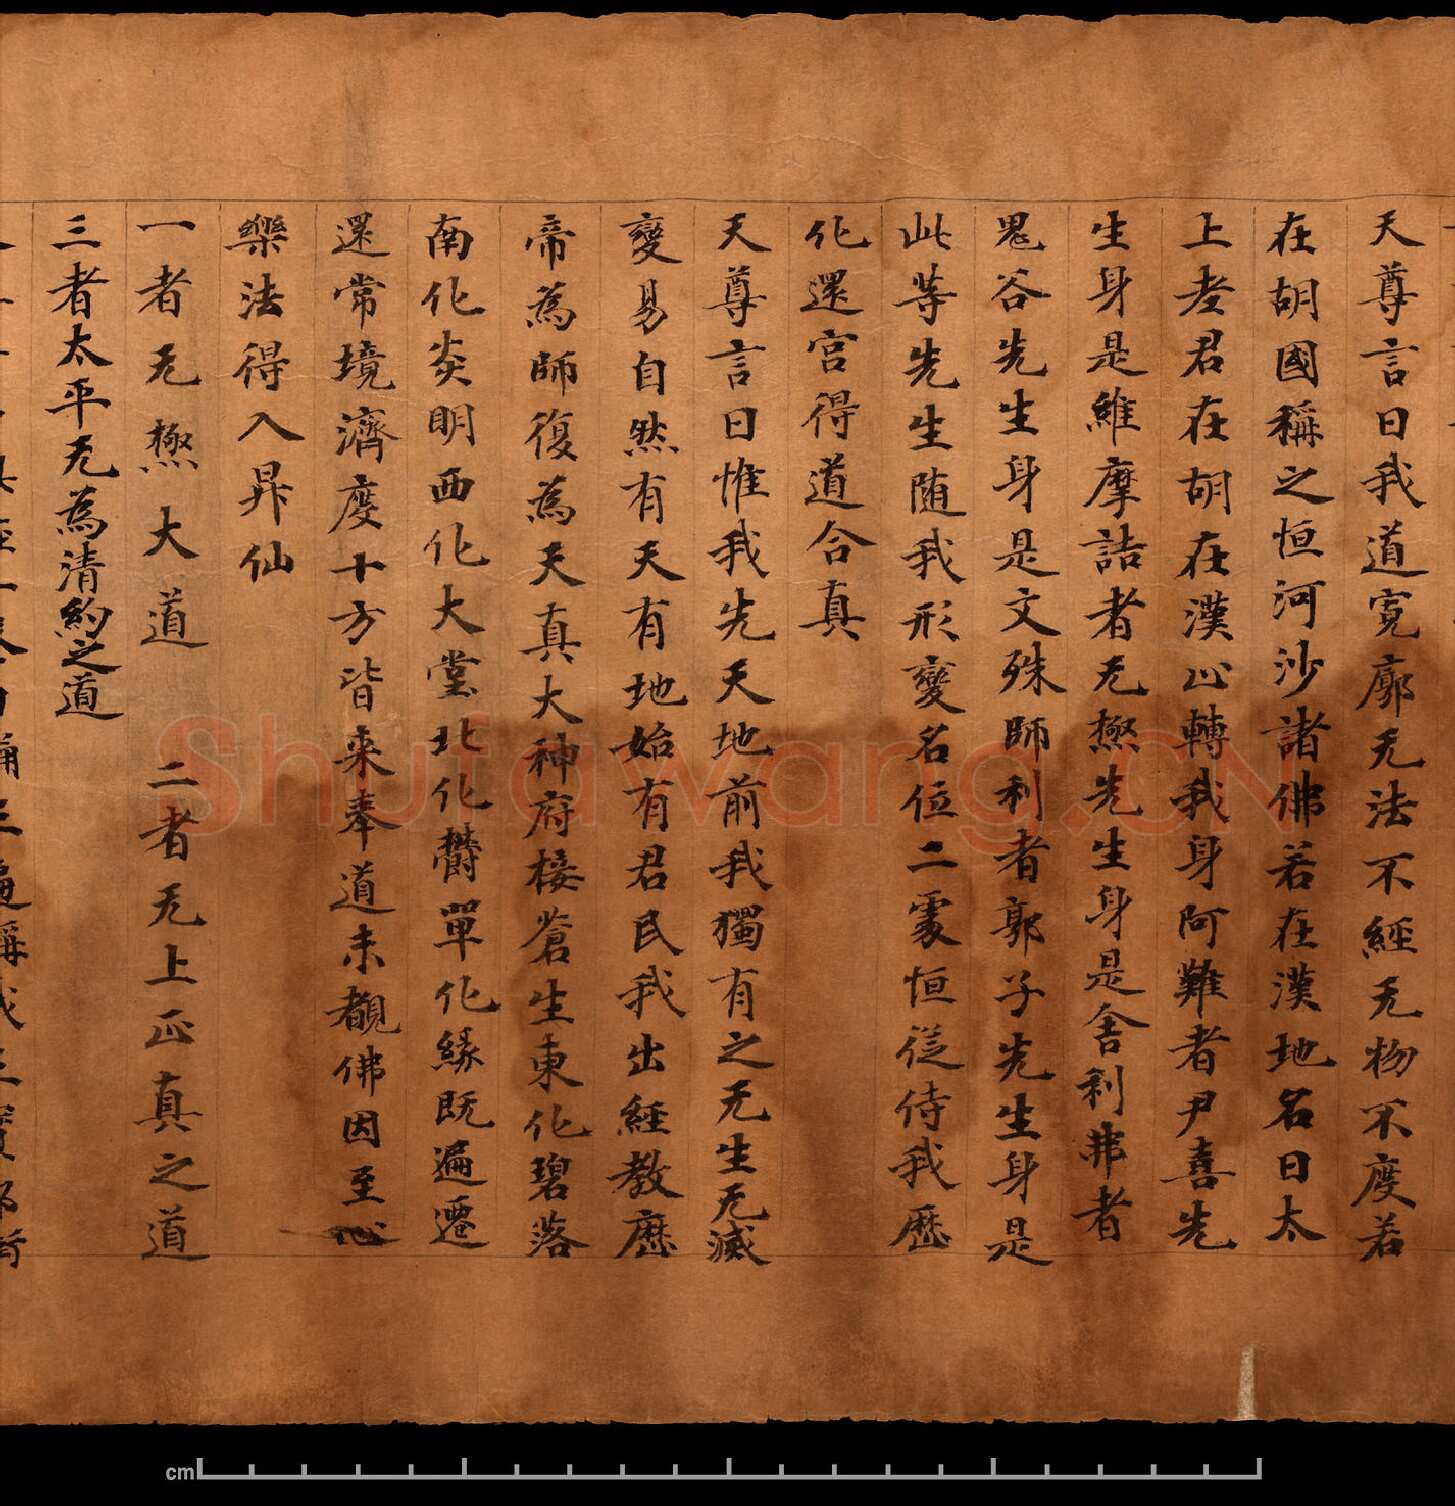 天尊言曰我道寬廓无法不經无物不度若
在胡國稱之恒河沙諸佛若在漢地名曰太
上老君在胡在漢心轉我身阿難者尹喜先
生身是維摩詰者无極先生身是舍利弗者
鬼谷先生身是文殊師利者郭子先生身是
此等先生随我形變名位二處恒從侍我歷
化還宫得道合真
天尊言曰惟我先天地前我獨有之无生无滅
變易自然有天有地始有君民我出經教歷
帝為師復為天真大神府接蒼生東化碧落
南化炎明西化大堂北化欝單化緣既遍遷
還常境濟度十方皆来奉道未覩佛因至心
樂法得入昇仙
一者无極大道 二者无上正真之道
三者太平无為清約之道
Shufawang.CN
cm